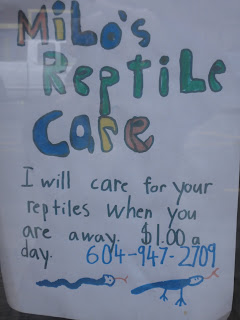 Milo's
Reptile
Care
I will care for your
reptiles when you
are away. $1.00 a
day. 604-947-2709